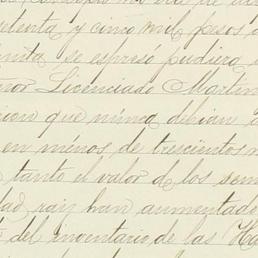 setenta y cinco mil pesos
se espresó pudiera
Licenciado Martin
que núnca debian
en ménos de trescientos
tanto el valor de los sem
dad raiz han aumentado
del inventario de las Ha